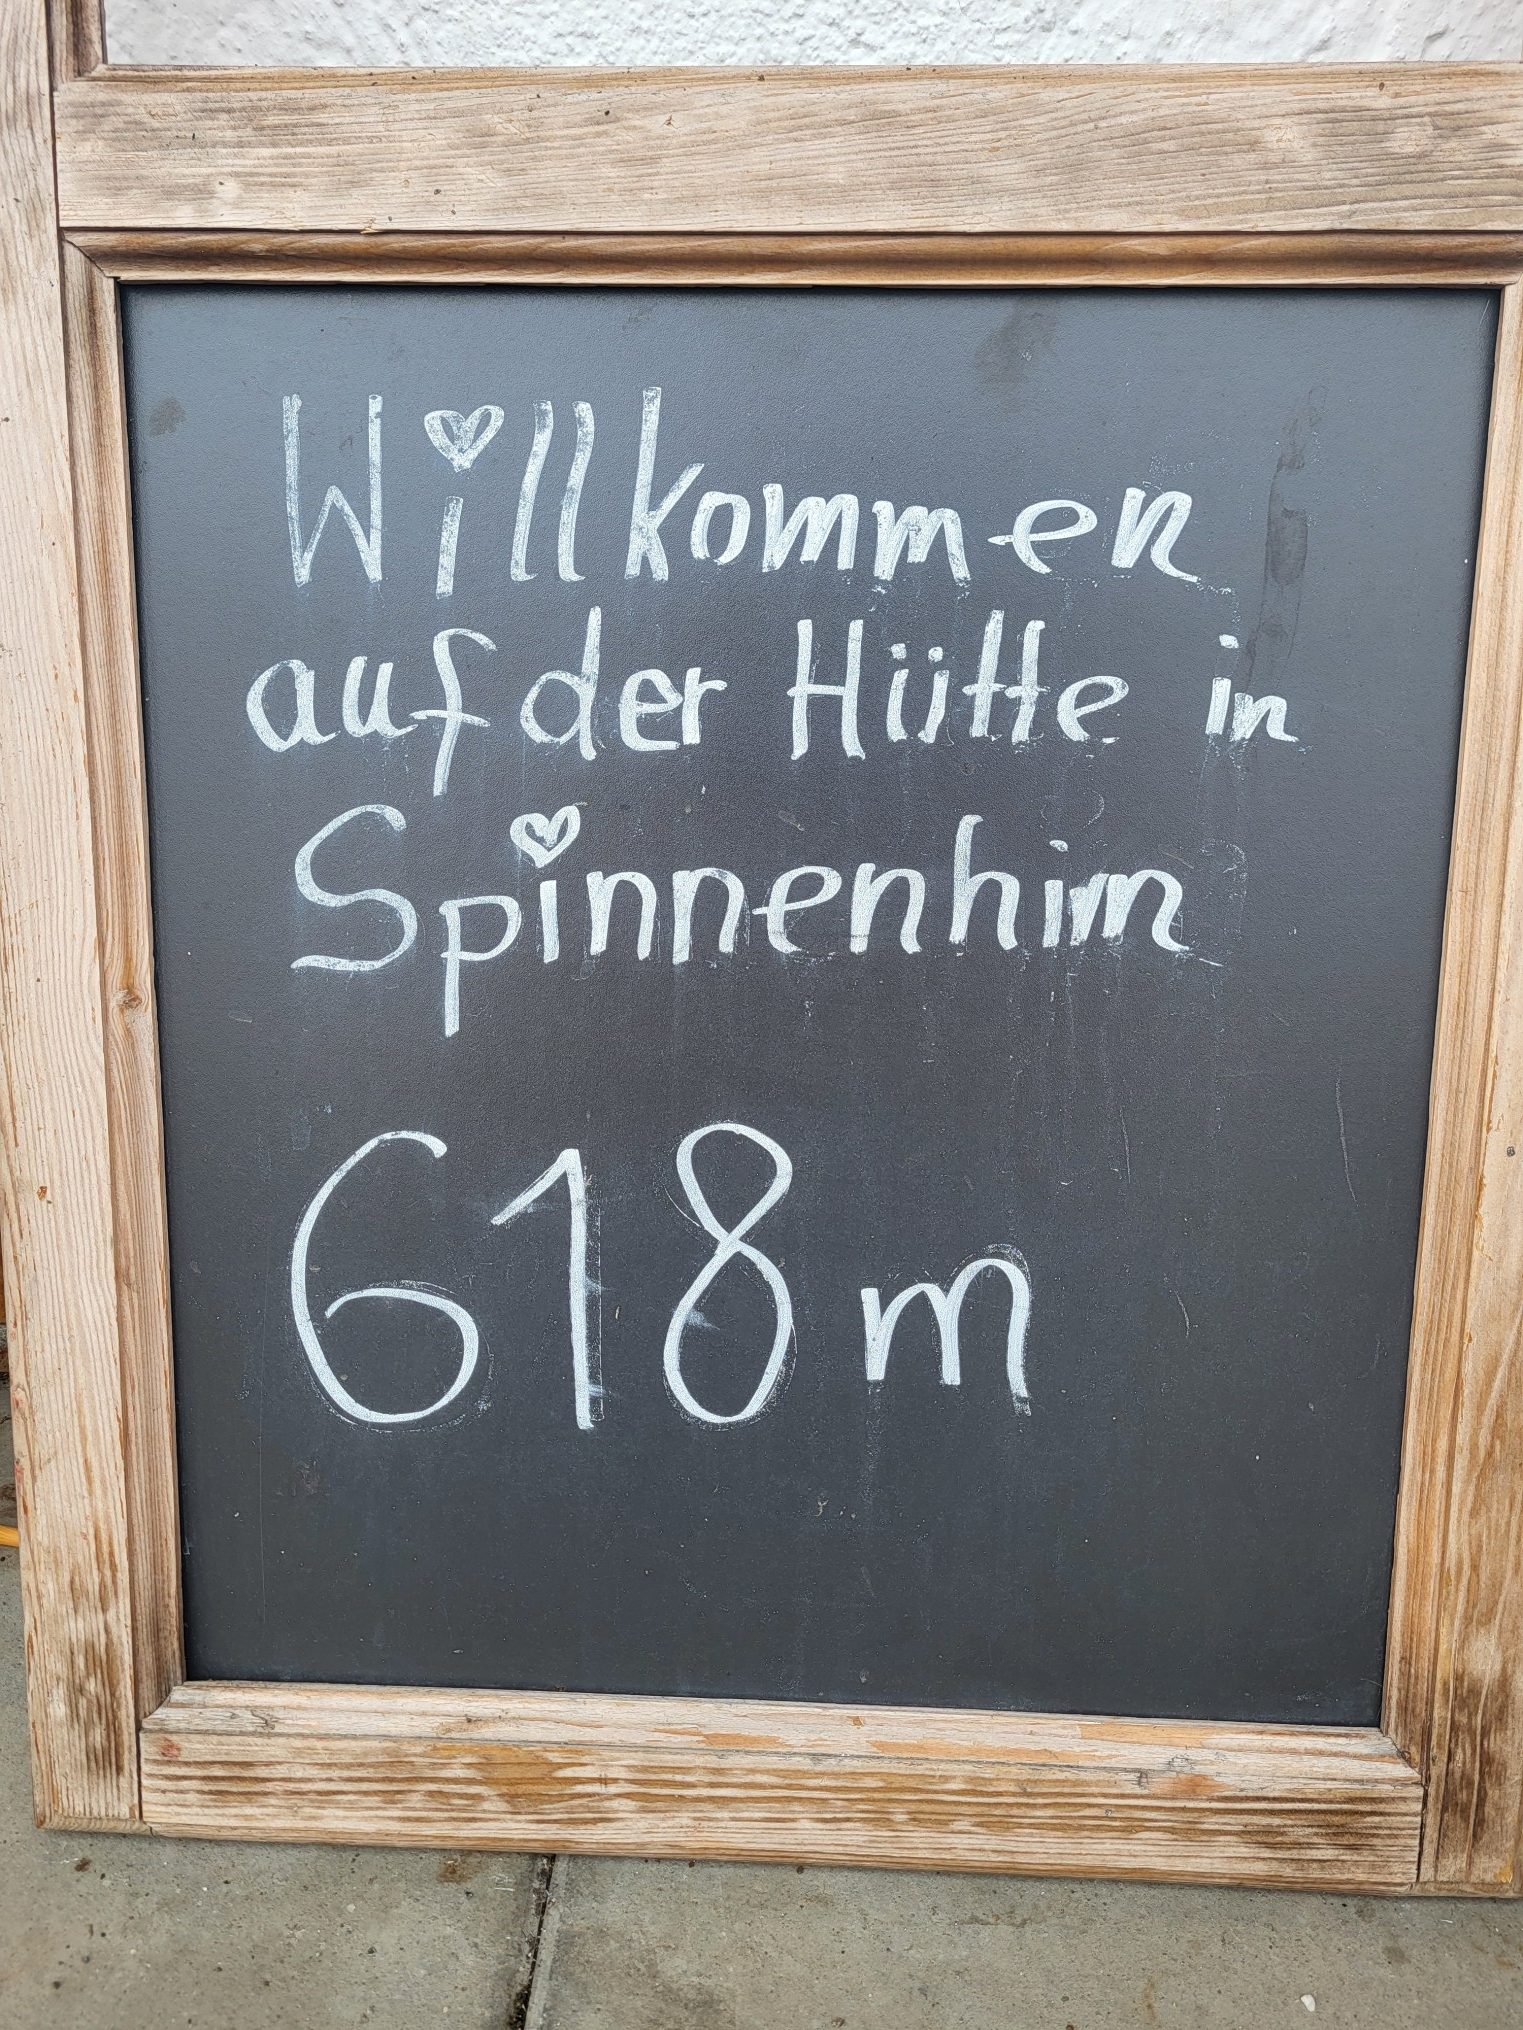 Willkommen
auf der Hütte in
Spinnenhirn
618 m